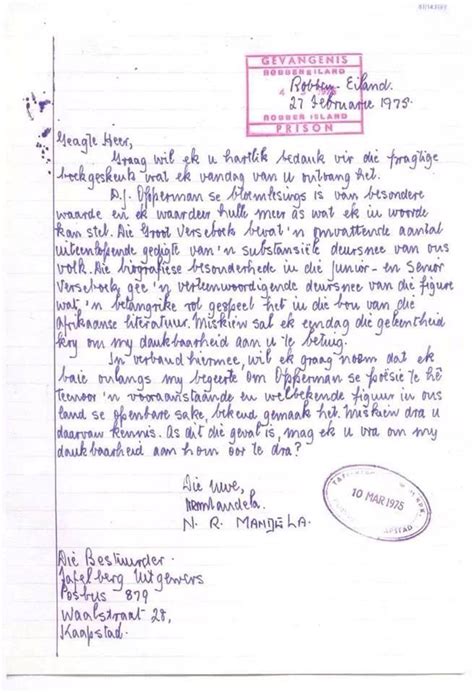 GEVANGENIS
ROBBENEILAND
Robben-Eiland.
27 Februarie 1975.
ROBBEN ISLAND
PRISON
Geagte Heer,
Graag wil ek u hartlik bedank vir die pragtige
boekgeskenk wat ek vandag van u ontvang het.
D.J. Opperman se bloemlesings is van besondere
waarde en ek waardeer hulle meer as wat ek in woorde
kan stel. Die Groot Verseboek bevat 'n omvattende aantal
uiteenlopende gedigte van 'n substansiële deursnee van ons
volk. Die biografiese besonderhede in die Junior- en Senior
Verseboek gee 'n verteenwoordigende deursnee van die figure
wat 'n belangrike rol gespeel het in die bou van die
Afrikaanse literatuur. Miskien sal ek eendag die geleentheid
kry om my dankbaarheid aan u te betuig.
In verband hiermee, wil ek graag noem dat ek
baie onlangs my begeerte om Opperman se poësie te hê
teenoor 'n vooraanstaande en welbekende figuur in ons
land se openbare sake, bekend gemaak het. Miskien dra u
daarvan kennis. As dit die geval is, mag ek u vra om my
dankbaarheid aan hom oor te dra?
Die uwe,
NRMandela
N. R. MANDELA.
10 MAR 1975
Die Bestuurder.
Tafelberg Uitgewers
Posbus 879
Waalstraat 28,
Kaapstad.